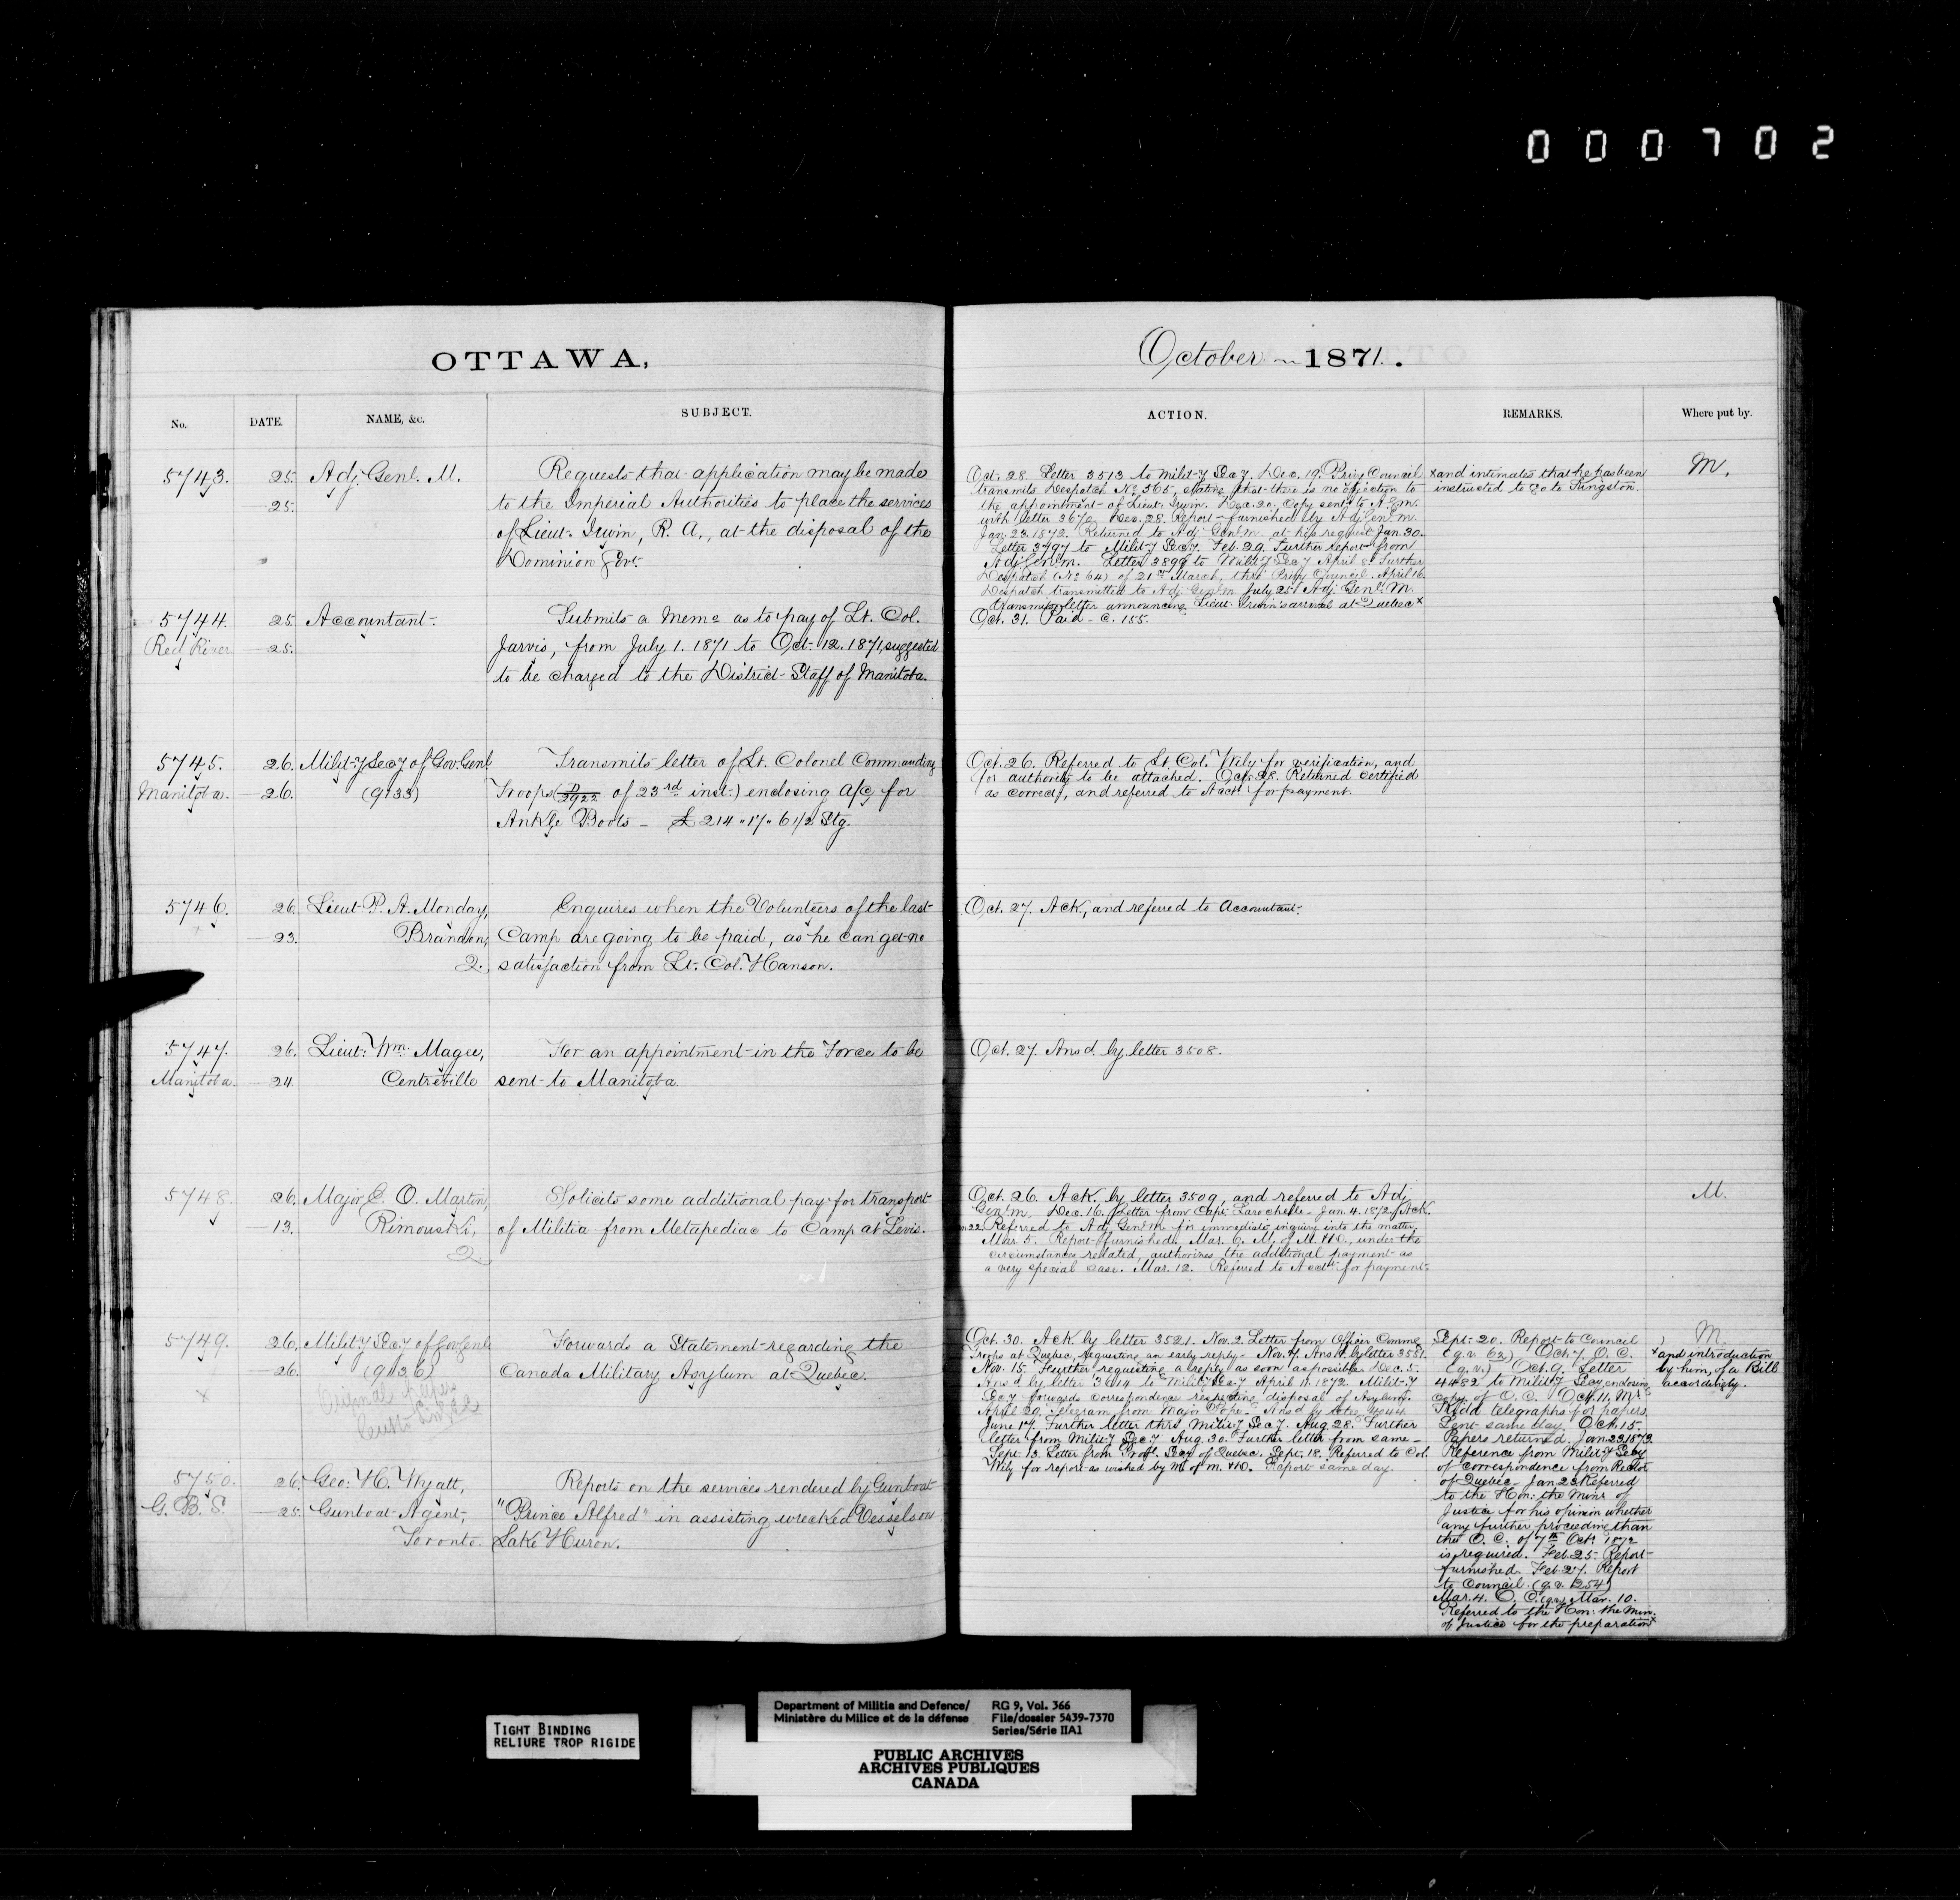 000702
OTTAWA,
No. DATE. NAME, &c. SUBJECT.
5743. 25. Adj. Genl. M. Requests that application may be made
25. to the Imperial Authorities to place the services
of Lieut. Irwin, R. A., at the disposal of the
Dominion Govt.
5744. 25. Accountant. Submits a Memo as to pay of Lt. Col.
Red River 25. Jarvis, from July 1. 1871 to Oct. 12. 1871, suggested
to be charged to the District Staff of Manitoba.
5745. 26. Milit-y Secy of Gov. Genl Transmits letter of Lt. Colonel Commanding
Manitoba. 26. (9133) Troops ( /2922 of 23rd inst.) enclosing a/c for
Ankle Boots - £ 214 " 17 " 6 1/2 Stg.
5746. 26. Lieut. P. A. Monday, Enquires when the Volunteers of the last
23. Brandon, Camp are going to be paid, as he can get no
2. satisfaction from Lt. Col. Hanson.
5747. 26. Lieut. Wm. Magee, For an appointment in the Force to be
Manitoba. 24. Centreville sent to Manitoba.
5748. 26. Major E. O. Martin, Solicits some additional pay for transport
13. Rimouski, of Militia from Metapediac to Camp at Levis.
2.
5749. 26. Milit-y Secy of Gov Genl Forwards a Statement regarding the
26. (9136) Canada Military Asylum at Quebec.
x Original
5750. 26. Geo: H. Wyatt, Reports on the services rendered by Gunboat
G. B. S. 25. Gunboat Agent, "Prince Alfred" in assisting wrecked Vessels on
Toronto. Lake Huron.
October 1871.
ACTION. REMARKS. Where put by.
Oct. 28. Letter 3513 to Milit-y Secy. Dec. 19. Privy Council
transmits Despatch No. 365, stating that there is no objection to
the appointment of Lieut. Irwin. Dec. 20. Copy sent to A. G. M.
with letter 3670. Dec. 28. Report furnished by Adj Genl M.
Jan. 23. 1872. Returned to Adj. Genl M. at his request. Jan. 30.
Letter 3797 to Milit-y Secy. Feb. 29. Further report from
Adj Genl M. Letter 3898 to Milit-y Secy April 8. Further
Despatch (No 64) of 21st March, thro' Privy Council. April 16.
Despatch transmitted to Adj. Genl M. July 25. Adj. Genl. M.
transmits letter announcing Lieut. Irwin's arrival at Quebec x
x and intimates that he has been
instructed to go to Kingston.
M.
Oct. 31. Paid - C. 155.
Oct. 26. Referred to Lt. Col. Wily for verification, and
for authority to be attached. Oct. 28. Returned certified
as correct, and referred to Acct. for payment.
Oct. 27. Ack., and referred to Accountant.
Oct. 27. Ansd. by letter 3508.
Oct. 26. Ack. by letter 3509, and referred to Adj
Genl M. Dec. 16. Letter from Capt. Larochelle. Jan. 4. 1872. Ack.
22. Referred to Adj. Genl M. for immediate inquiry into the matter.
Mar. 5. Report furnished. Mar. 6. M. of M. & D., under the
circumstances related, authorizes the additional payment as
a very special case. Mar. 12. Referred to Acct. for payment.
M.
Oct. 30. Ack. by letter 3521. Nov. 2. Letter from Officer Commg
Troops at Quebec, requesting an early reply. Nov. 7. Ansd. by letter 3551.
Nov. 15. Further requesting a reply as soon as possible. Dec. 5.
Ansd by letter 3614 to Milit-y Secy. April 11. 1872. Milit-y
Secy forwards correspondence respecting disposal of Asylum.
April 20. Telegram from Major Pope. Ansd by letter
June 17. Further letter thro. Milit-y Secy. Aug. 28. Further
letter from Milit-y Secy. Aug. 30. Further letter from same.
Sept. 13. Letter from Provl. Secy of Quebec. Sept. 18. Referred to Col.
Wily for report as wished by M. of M. & D. Report same day.
Sept. 20. Report to Council
(q.v. 62) Oct. 7. O. C.
(q.v.) Oct. 9. Letter
4482 to Milit-y Secy, enclosing
copy of O. C. Oct. 11. Mr
Kidd telegraphs for papers.
Sent same day. Oct. 15.
Papers returned. Jan. 23. 1873.
Reference from Milit-y Secy
of correspondence from Rector
of Quebec. Jan 23. Referred
to the Hon: the Minr. of
Justice for his opinion whether
any further proceeding than
the O. C. of 7th Oct. 1872
is required. Feb. 25. Report
furnished. Feb. 27. Report
to Council. (q.v. 254)
Mar. 4. O. C. (q.v.) Mar. 10.
Referred to the Hon: the Min.
of Justice for the preparation x
M.
x and introduction
by him, of a Bill
accordingly.
TIGHT BINDING
RELIURE TROP RIGIDE
Department of Militia and Defence/
Ministère du Milice et de la défense
RG 9, Vol. 366
File/dossier 5439-7370
Series/Série IIA1
PUBLIC ARCHIVES
ARCHIVES PUBLIQUES
CANADA